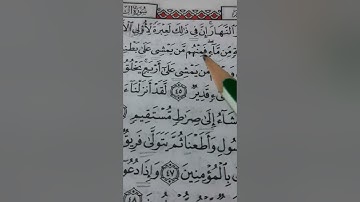 سُورَةُ
النَّهَارَ إِنَّ فِي ذَٰلِكَ لَعِبْرَةً لِّأُولِي
مِّن مَّآءٍ فَمِنْهُم مَّن يَمْشِي عَلَىٰ
مَّن يَمْشِي عَلَىٰٓ أَرْبَعٍ يَخْلُقُ
قَدِيرٌ ٤٥ لَّقَدْ أَنزَلْنَآ
إِلَىٰ صِرَٰطٍ مُّسْتَقِيمٍ
وَأَطَعْنَا ثُمَّ يَتَوَلَّىٰ فَرِيقٌ
بِٱلْمُؤْمِنِينَ ٤٧ وَإِذَا
٤٨